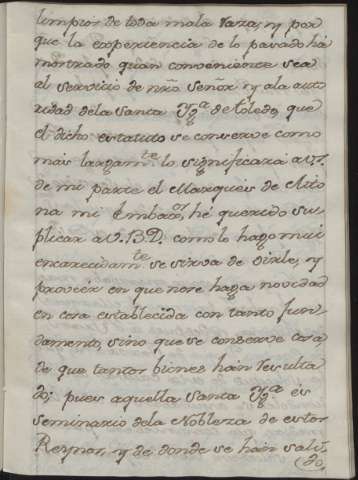 limpios de toda mala raza, y por
que la experiencia de lo pasado há
mostrado quan conveniente sea
al servicio de nrō Señor, y ala auto
ridad dela Santa Ygª de Toledo, que
el dicho estatuto se conserve como
mais largamte lo significará a V.
de mi parte el Marqueis de Aito
na mi Embaor, hé querido su
plicar a V.BD. como lo hago mui
encarecidamte se sirva de oirle, y
proveér en que nose haga novidad
en cosa establecida con tanto fun
damento, sino que se conserve cosa
de que tantos bienes háin resulta
do; pues aquella Santa Ygª és
seminario dela Nobleza de estos
Reynos, y de donde se háin sali
do,